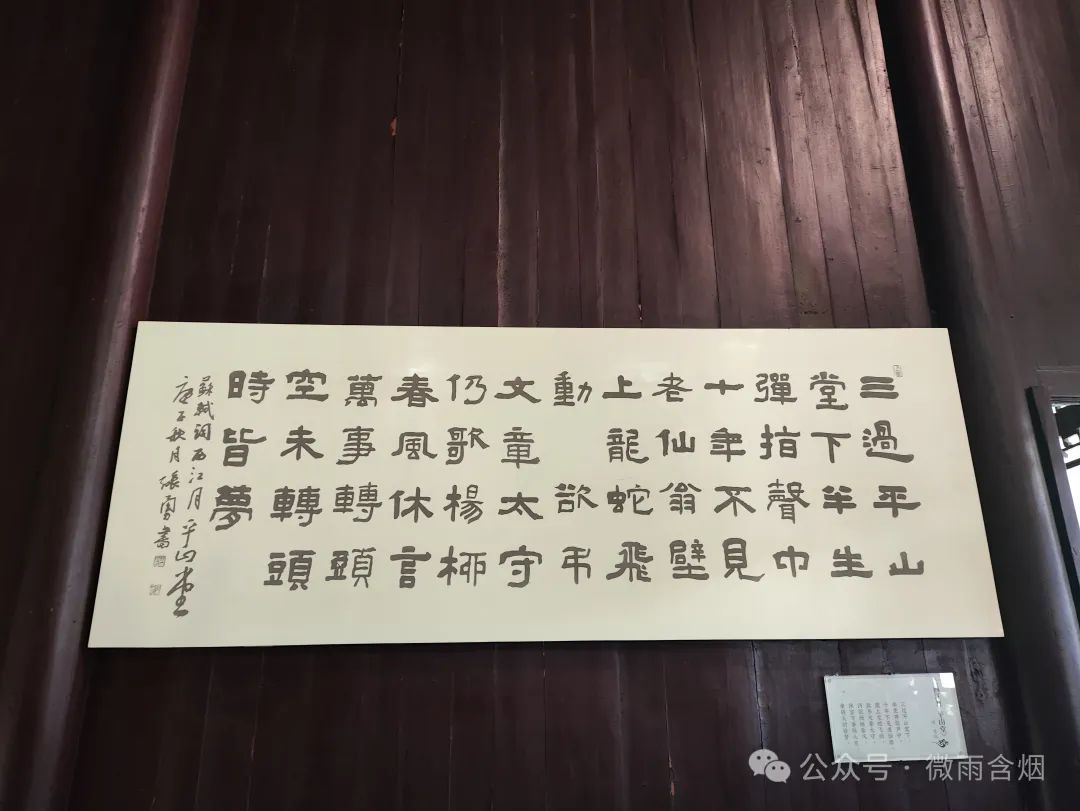 三過平山
堂下半生
彈指聲中
十年不見
老仙翁壁
上龍蛇飛
動 欲弔
文章太守
仍歌楊柳
春風休言
萬事轉頭
空未轉頭
時皆夢
蘇軾詞西江月平山堂
庚子秋月張書
公众号·微雨含烟